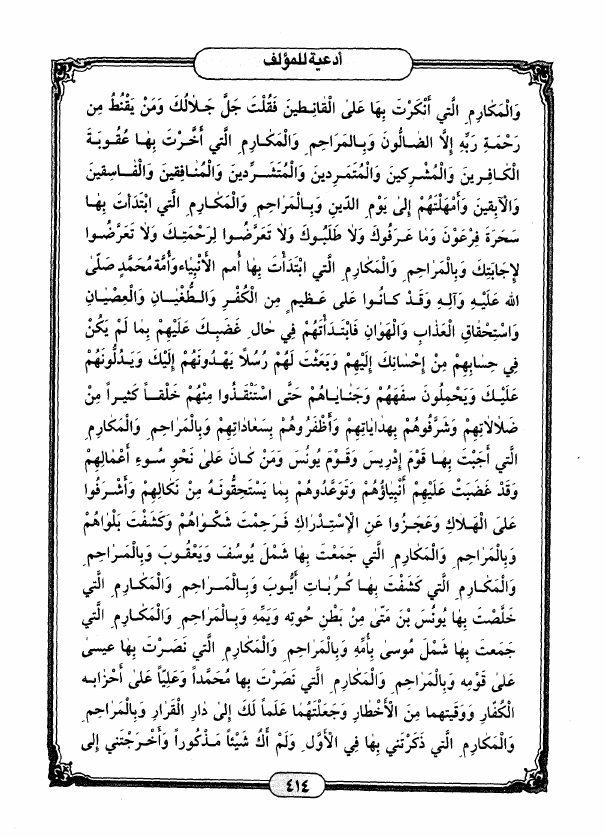 أدعية للمؤلف
وَالْمَكَارِمِ الَّتي أَنْكَرْتَ بِهَا عَلَى الْقَانِطينَ فَقُلْتَ جَلَّ جَلَالُكَ وَمَنْ يَقْنُطُ مِن
رَحْمَةِ رَبِّهِ إِلَّا الضَالُّونَ وَبِالْمَرَاحِمِ وَالْمَكَارِمِ الَّتي أَخَّرْتَ بِهَا عُقُوبَةَ
الْكَافِرينَ وَالْمُشْرِكينَ وَالْمُتَمَرِدينَ وَالْمُتَشَرِّدينَ وَالْمُنَافِقينَ وَالْفَاسِقينَ
وَالْآبِقينَ وَأَمْهَلْتَهُمْ إِلَى يَوْمِ الدّينِ وَبِالْمَرَاحِمِ وَالْمَكَارِمِ الَّتي ابْتَدَأْتَ بِهَا
سَحَرَةَ فِرْعَوْنَ وَمَا عَرَفُوكَ وَلَا طَلَبُوكَ وَلَا تَعَرَّضُوا لِرَحْمَتِكَ وَلَا تَعَرَّضُوا
لِإِجَابَتِكَ وَبِالْمَرَاحِمِ وَالْمَكَارِمِ الَّتي ابْتَدَأْتَ بِهَا أُمم الْأَنْبِيَاءِ وَأُمَّةَ مُحَمَّدٍ صَلَّى
الله عَلَيْهِ وَآلِهِ وَقَدْ كَانُوا عَلَى عَظيمٍ مِن الْكُفْرِ وَالطُّغْيَانِ وَالْعِصْيَانِ
وَاسْتِحْقَاقِ الْعَذَابِ وَالْهَوَانِ فَابْتَدَأْتَهُمْ فِي حَالِ غَضَبِكَ عَلَيْهِمْ بِمَا لَمْ يَكُنْ
فِي حِسَابِهِمْ مِنْ إِحْسَانِكَ إِلَيْهِمْ وَبَعَثْتَ لَهُمْ رُسُلًا يَهْدُونَهُمْ إِلَيْكَ وَيَدُلُّونَهُمْ
عَلَيْكَ وَيَحْمِلُونَ سفَهَهُمْ وَجَنَايَاهُمْ حَتَّى اسْتَنْقَذُوا مِنْهُمْ خَلْقاً كَثيراً مِنْ
ضَلَالَاتِهِمْ وَشَرَّفُوهُمْ بِهِدَايَاتِهِمْ وَأَظْفَرُوهُمْ بِسَعَادَاتِهِمْ وَبِالْمَرَاحِمِ وَالْمَكَارِمِ
الَّتي أَجَبْتَ بِهَا قَوْمَ إِدْريسَ وَقَوْمَ يُونُسَ وَمَنْ كَانَ عَلَى نَحْوِ سُوءِ أَعْمَالِهِمْ
وَقَدْ غَضَبَتْ عَلَيْهِمْ أَنْبِيَاؤُهُمْ وَتَوَعَّدُوهُمْ بِمَا يَسْتَحِقُّونَهُ مِنْ نَكَالِهِمْ وَأَشْرَفُوا
عَلَى الْهَلَاكِ وَعَجَزُوا عَنِ الْإِسْتِدْرَاكِ فَرَحِمْتَ شَكْوَاهُمْ وَكَشَفْتَ بَلْوَاهُمْ
وَبِالْمَرَاحِمِ وَالْمَكَارِمِ الَّتي جَمَعْتَ بِهَا شَمْلَ يُوسُفَ وَيَعْقُوبَ وَبِالْمَرَاحِمِ
وَالْمَكَارِمِ الَّتي كَشَفْتَ بِهَا كُرُبَاتِ أَيُّوبَ وَبِالْمَرَاحِمِ وَالْمَكَارِمِ الَّتي
خَلَّصْتَ بِهَا يُونُسَ بْنَ مَتّى مِنْ بَطْنِ حُوتِهِ وَيَمِّهِ وَبِالْمَرَاحِمِ وَالْمَكَارِمِ الَّتي
جَمَعتَ بِهَا شَمْلَ مُوسَى بِأُمِّهِ وَبِالْمَرَاحِمِ وَالْمَكَارِمِ الَّتي نَصَرْتَ بِهَا عيسىٰ
عَلَى قَوْمِهِ وَبِالْمَرَاحِمِ وَالْمَكَارِمِ الَّتي نَصَرْتَ بِهَا مُحَمَّداً وَعَلِيّاً عَلَى أَحْزَابِهِ
الْكُفَّارِ وَوَقَيتَهما مِنَ الْأَخْطَارِ وَجَعَلْتَهُمَا عَلَماً لَكَ إِلَى دَارِ الْقَرَارِ وَبِالْمَرَاحِمِ
وَالْمَكَارِمِ الَّتي ذَكَرْتَني بِهَا فِي الْأَوَّلِ وَلَمْ أَكُ شَيْئاً مَذْكُوراً وَأَخْرَجْتَني إِلَى
٤١٤